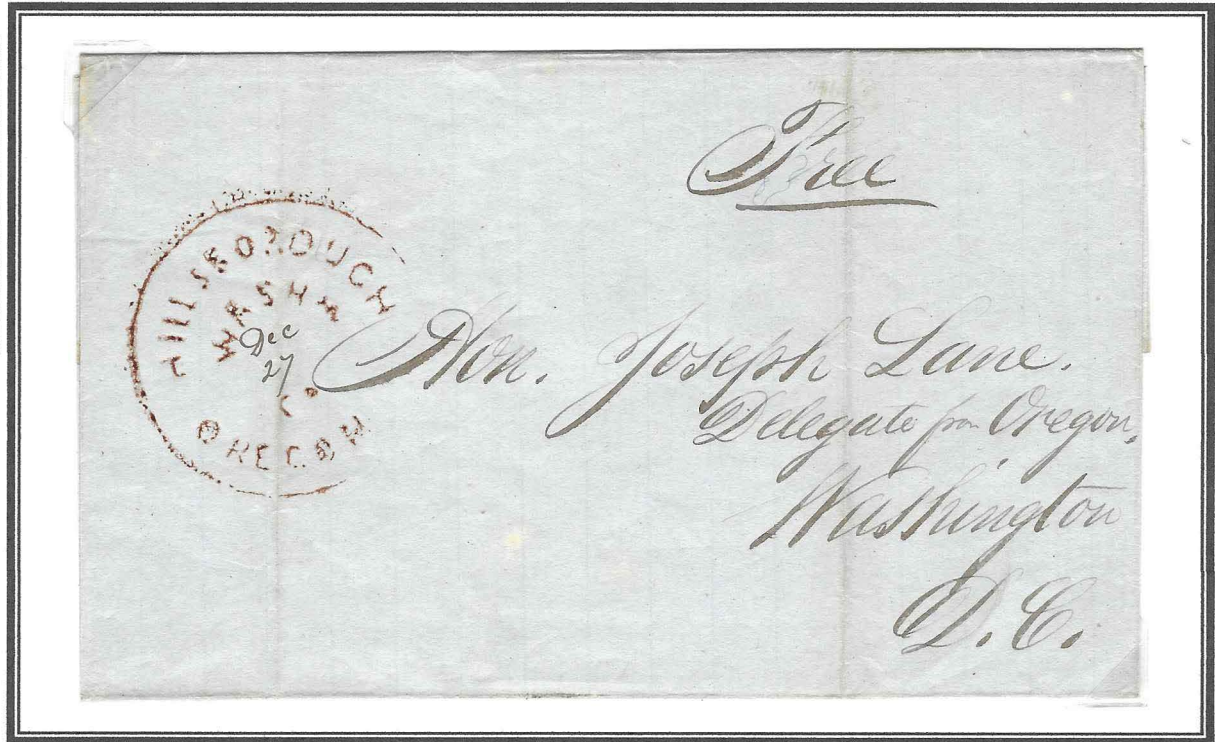 Free
HILLSBOROUGH
WASHN
Dec
27
Co
OREGON
Hon. Joseph Lane.
Delegate from Oregon,
Washington
D.C.